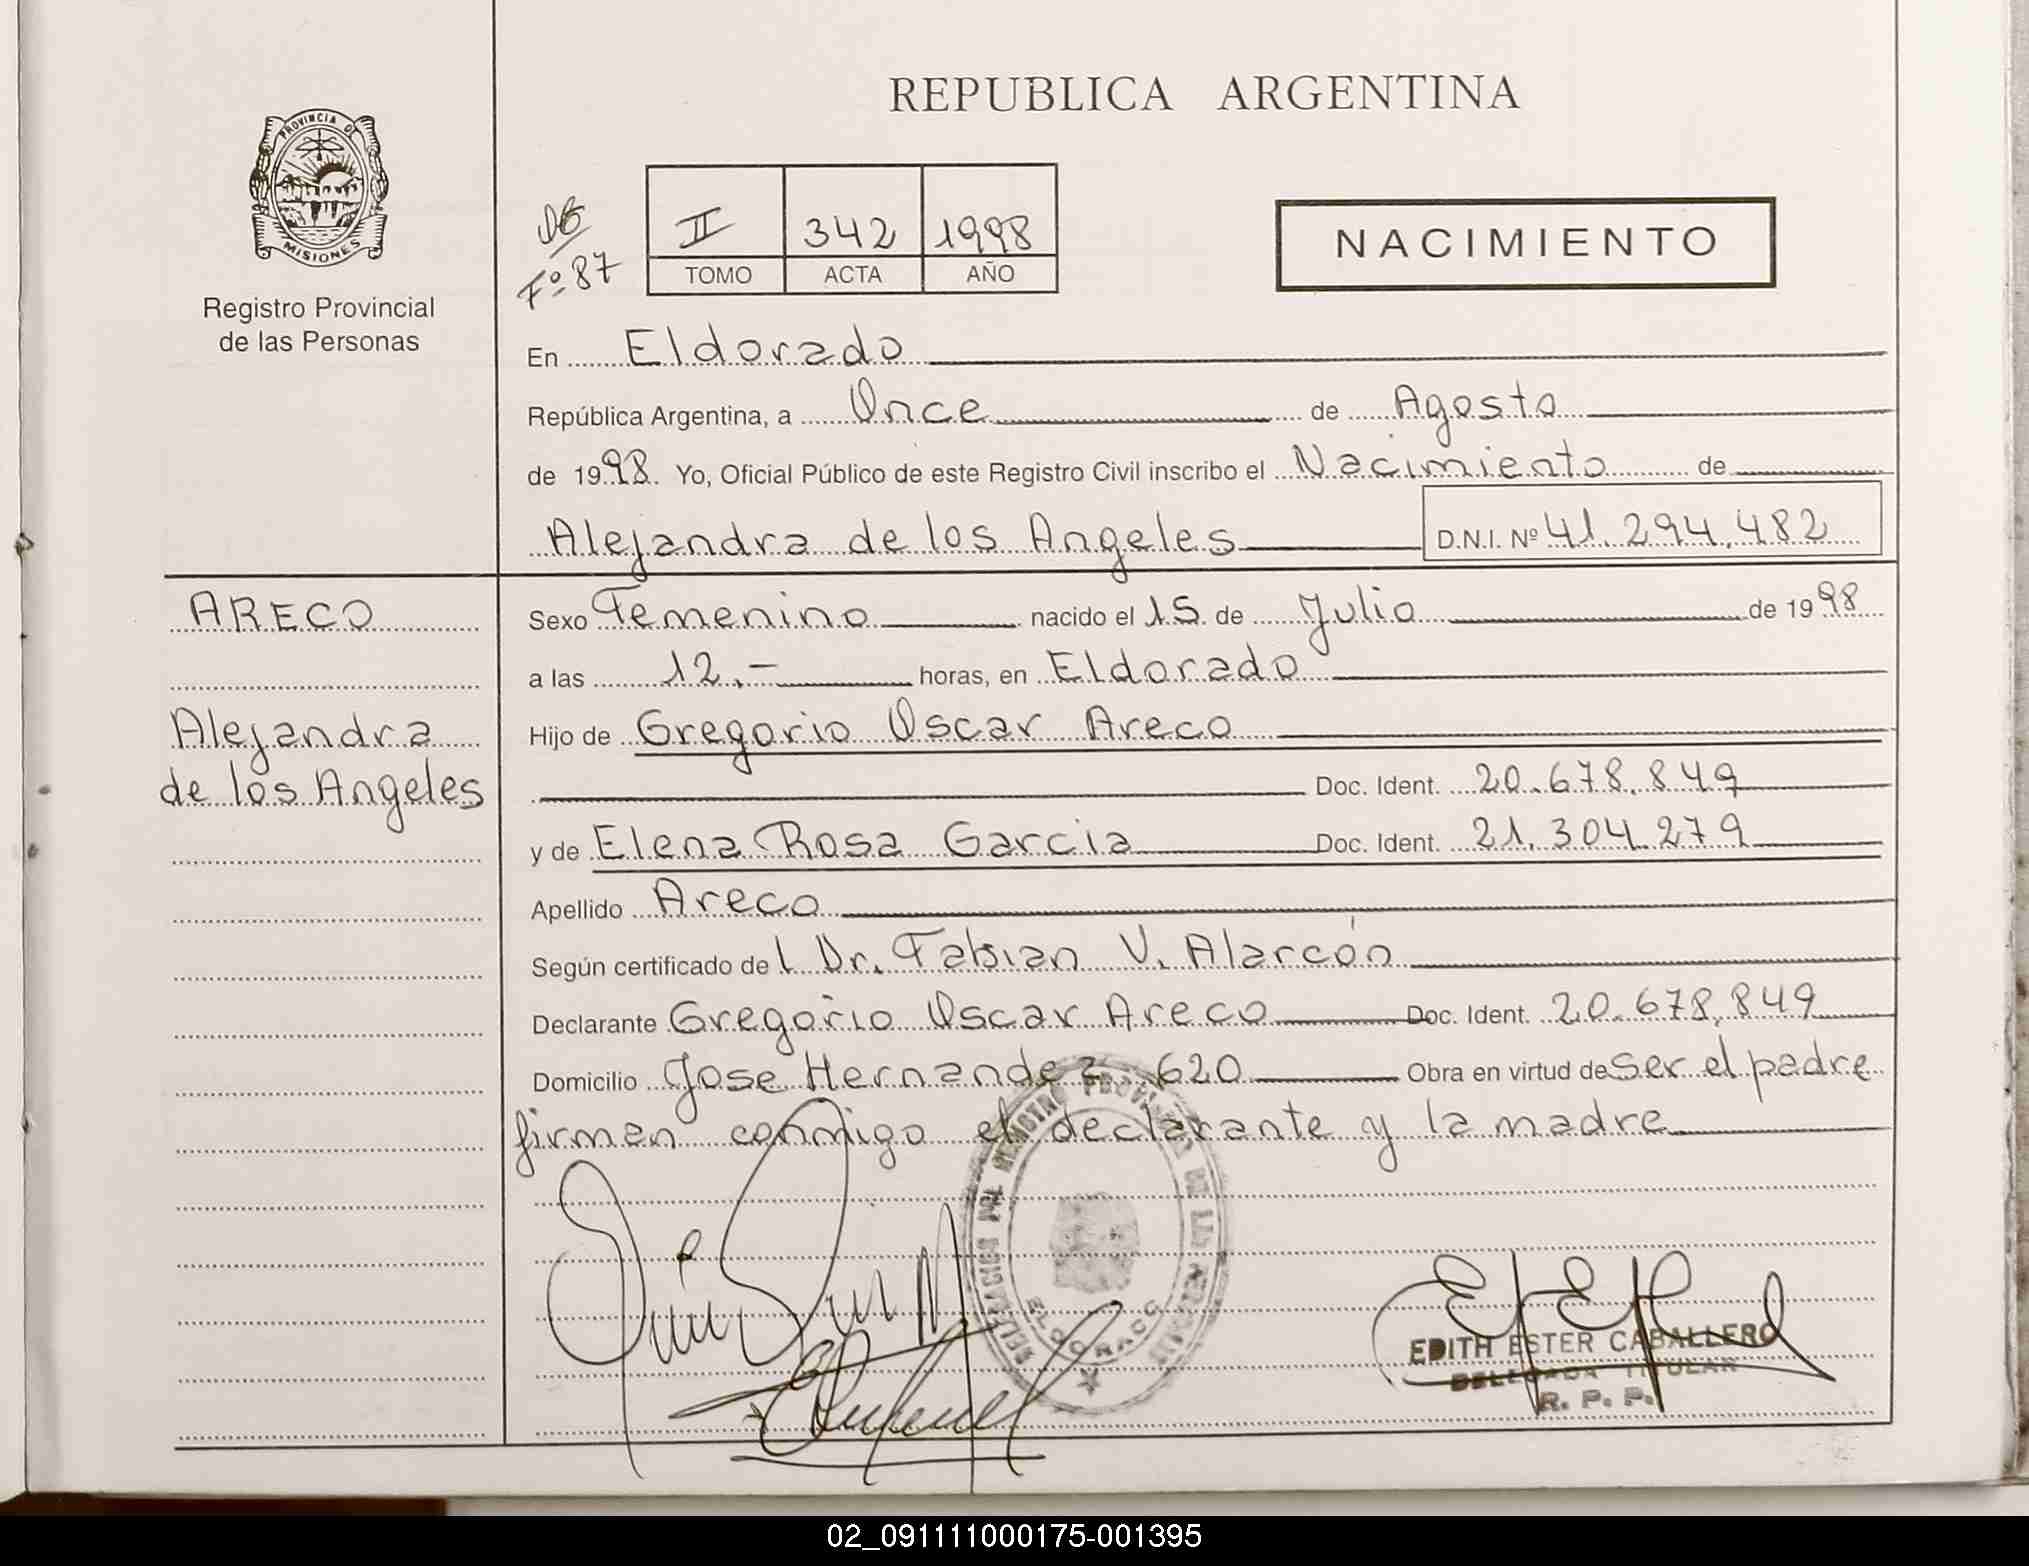 REPUBLICA ARGENTINA
PROVINCIA DE
MISIONES
Registro Provincial
de las Personas
Fº 87
II 342 1998
TOMO ACTA AÑO
NACIMIENTO
En Eldorado
República Argentina, a Once de Agosto
de 1998. Yo, Oficial Público de este Registro Civil inscribo el Nacimiento de
Alejandra de los Angeles D.N.I. Nº 41.294.482
ARECO
Alejandra
de los Angeles
Sexo Femenino nacido el 15 de Julio de 1998
a las 12.- horas, en Eldorado
Hijo de Gregorio Oscar Areco
Doc. Ident. 20.678.849
y de Elena Rosa Garcia Doc. Ident. 21.304.279
Apellido Areco
Según certificado del Dr. Fabian V. Alarcón
Declarante Gregorio Oscar Areco Doc. Ident. 20.678.849
Domicilio Jose Hernandez 620 Obra en virtud de ser el padre
firman conmigo el declarante y la madre
DEL REGISTRO PROVINCIAL DE LAS PERSONAS
ELDORADO
EDITH ESTER CABALLERO
DELEGADA TITULAR
R. P. P.
02_091111000175-001395